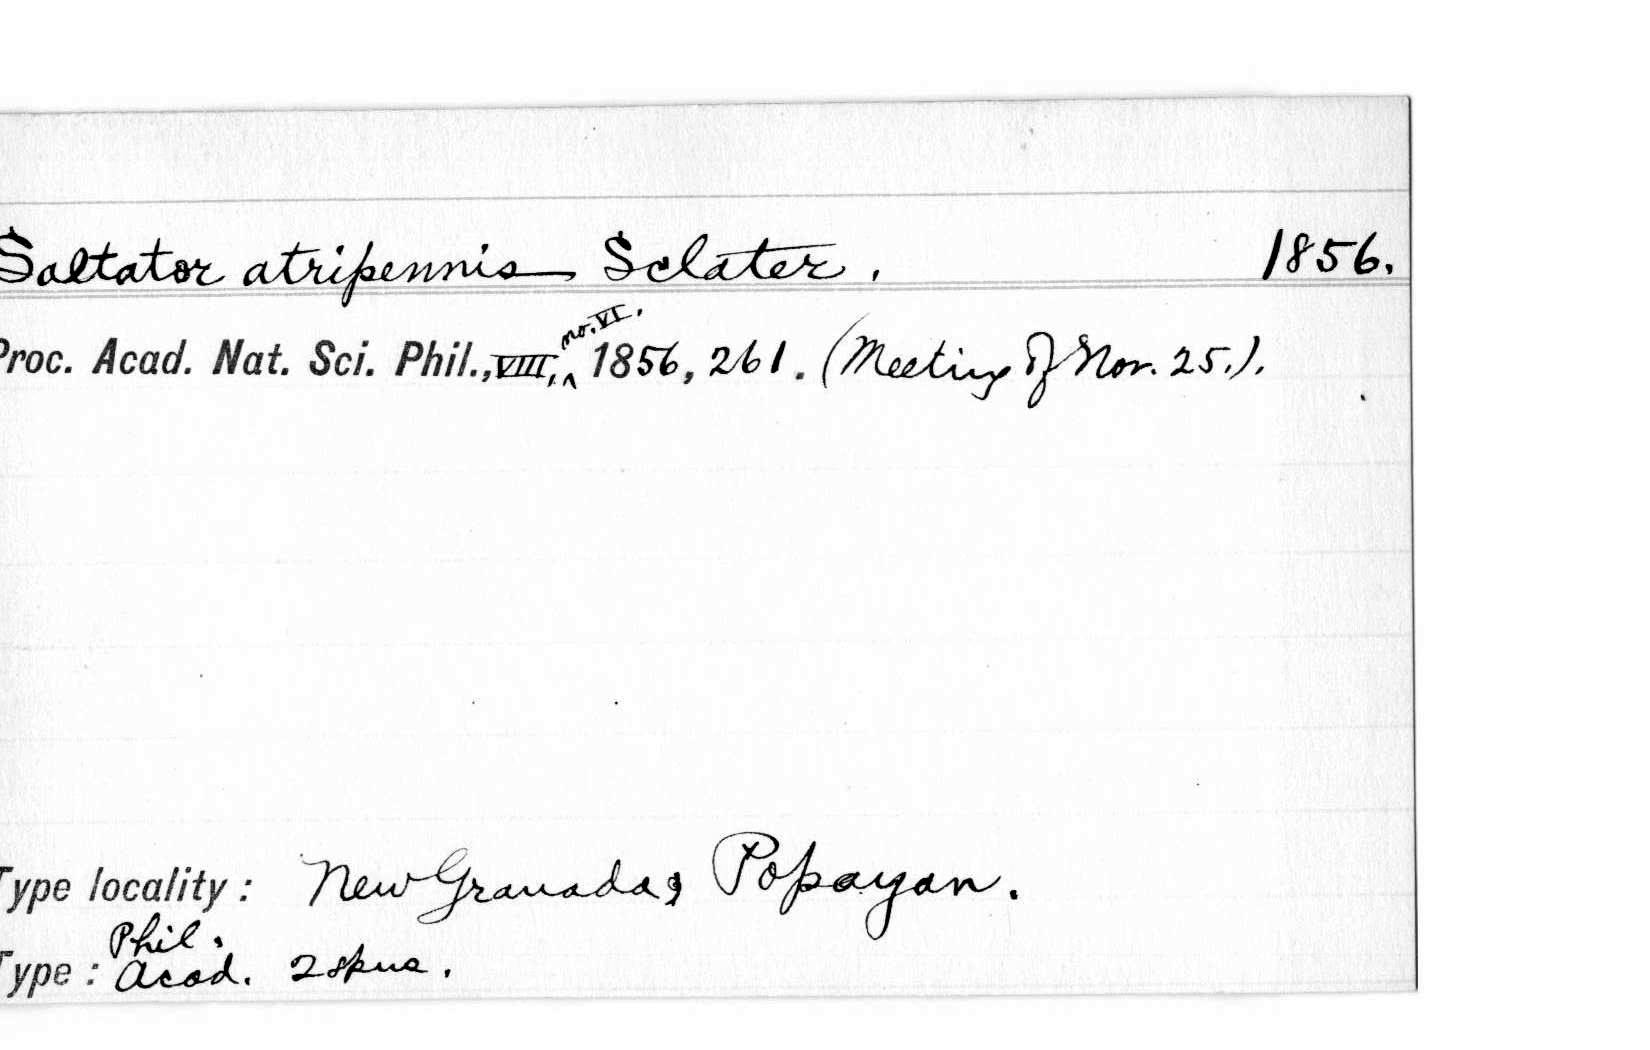 Saltator atripennis Sclater. 1856.
Proc. Acad. Nat. Sci. Phil., VIII, no. VI. 1856, 261. (Meeting of Nov. 25.).
Type locality: New Granada, Popayan.
Phil.
Type: Acad. 2 spns.